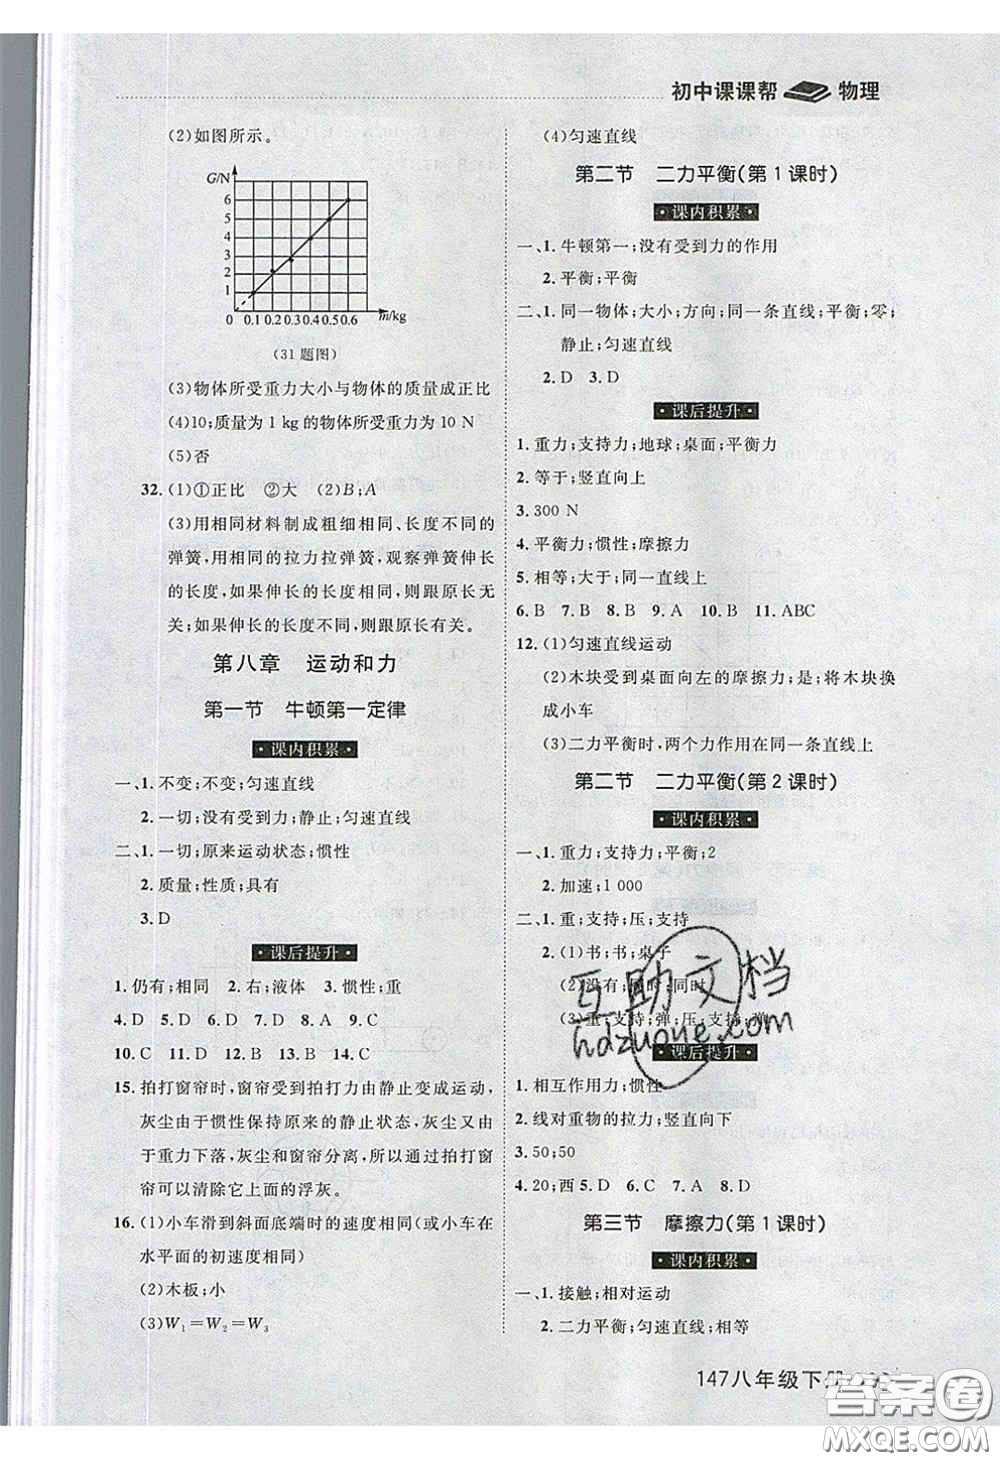 初中课课帮 物理
(2)如图所示。
G/N
6
5
4
3
2
1
0 0.1 0.2 0.3 0.4 0.5 0.6 m/kg
(31题图)
(3)物体所受重力大小与物体的质量成正比
(4)10;质量为1 kg的物体所受重力为10 N
(5)否
32.(1)①正比 ②大 (2)B;A
(3)用相同材料制成粗细相同、长度不同的
弹簧,用相同的拉力拉弹簧,观察弹簧伸长
的长度,如果伸长的长度相同,则跟原长无
关;如果伸长的长度不同,则跟原长有关。
第八章 运动和力
第一节 牛顿第一定律
·课内积累·
一、1.不变;不变;匀速直线
2.一切;没有受到力;静止;匀速直线
二、1.一切;原来运动状态;惯性
2.质量;性质;具有
3.D
·课后提升·
1.仍有;相同 2.右;液体 3.惯性;重
4.D 5.D 6.D 7.D 8.A 9.C
10.C 11.D 12.B 13.B 14.C
15.拍打窗帘时,窗帘受到拍打力由静止变成运动,
灰尘由于惯性保持原来的静止状态,灰尘又由
于重力下落,灰尘和窗帘分离,所以通过拍打窗
帘可以清除它上面的浮灰。
16.(1)小车滑到斜面底端时的速度相同(或小车在
水平面的初速度相同)
(2)木板;小
(3)W₁=W₂=W₃
(4)匀速直线
第二节 二力平衡(第1课时)
·课内积累·
一、1.牛顿第一;没有受到力的作用
2.平衡;平衡
二、1.同一物体;大小;方向;同一条直线;平衡;零;
静止;匀速直线
2.D 3.D
·课后提升·
1.重力;支持力;地球;桌面;平衡力
2.等于;竖直向上
3.300 N
4.平衡力;惯性;摩擦力
5.相等;大于;同一直线上
6.B 7.B 8.B 9.A 10.B 11.ABC
12.(1)匀速直线运动
(2)木块受到桌面向左的摩擦力;是;将木块换
成小车
(3)二力平衡时,两个力作用在同一条直线上
第二节 二力平衡(第2课时)
·课内积累·
一、1.重力;支持力;平衡;2
2.加速;1 000
二、1.重;支持;压;支持
2.(1)书;书;桌子
(2)没有;同时;同时
(3)重;支持;弹;压;支持;弹
·课后提升·
1.相互作用力;惯性
2.线对重物的拉力;竖直向下
3.50;50
4.20;西 5.D 6.D 7.C 8.D 9.D
第三节 摩擦力(第1课时)
·课内积累·
一、1.接触;相对运动
2.二力平衡;匀速直线;相等
147八年级下册
互助文档
hdzuoye.com
答案圈
MXQE.COM